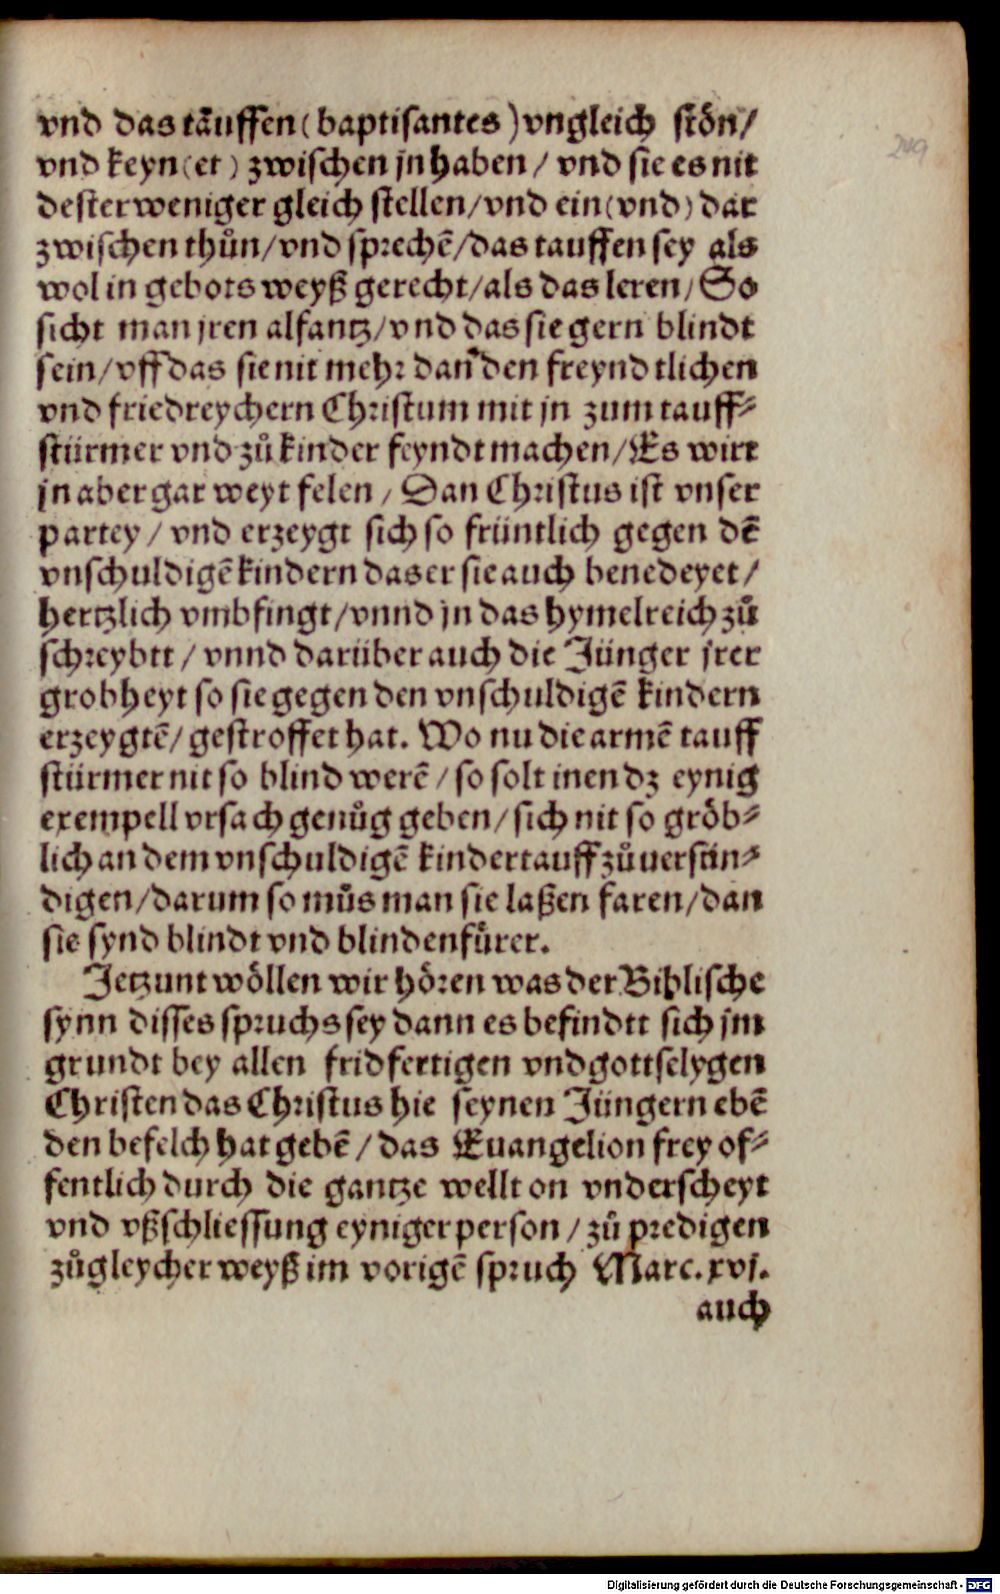 vnd das tauffen (baptisantes) vngleich stön/
249
vnd keyn (et) zwischen jn haben / vnd sie es nit
dester weniger gleich stellen/vnd ein (vnd) dar
zwischen thůn/vnd sprechẽ/das tauffen sey als
wol in gebots weyß gerecht/als das leren/So
sicht man jren alfantz/vnd das sie gern blindt
sein/vff das sie nit mehr dan den freyndtlichen
vnd friedreychern Christum mit jn zum tauff⸗
stürmer vnd zů kinder feyndt machen/Es wirt
jn aber gar weyt felen / Dan Christus ist vnser
partey / vnd erzeygt sich so früntlich gegen dẽ
vnschuldigẽ kindern das er sie auch benedeyet/
hertzlich vmbfingt/vnnd jn das hymelreich zů
schreybtt / vnnd darüber auch die Jünger jrer
grobheyt so sie gegen den vnschuldigẽ kindern
erzeygtẽ/ gestroffet hat. Wo nu die armẽ tauff
stürmer nit so blind werẽ / so solt inen dz eynig
exempell vrsach genůg geben/sich nit so gröb⸗
lich an dem vnschuldigẽ kindertauff zů uersün⸗
digen/darum so můs man sie laßen faren/dan
sie synd blindt vnd blindenfürer.
Jetzunt wöllen wir hören was der Biblische
synn disses spruchs sey dann es befindtt sich jm
grundt bey allen fridfertigen vnd gottselygen
Christen das Christus hie seynen Jüngern ebẽ
den befelch hat gebẽ / das Euangelion frey of⸗
fentlich durch die gantze wellt on vnderscheyt
vnd vßschliessung eyniger person / zů predigen
zůgleycher weyß im vorigẽ spruch Marc. xvj.
auch
Digitalisierung gefördert durch die Deutsche Forschungsgemeinschaft - DFG